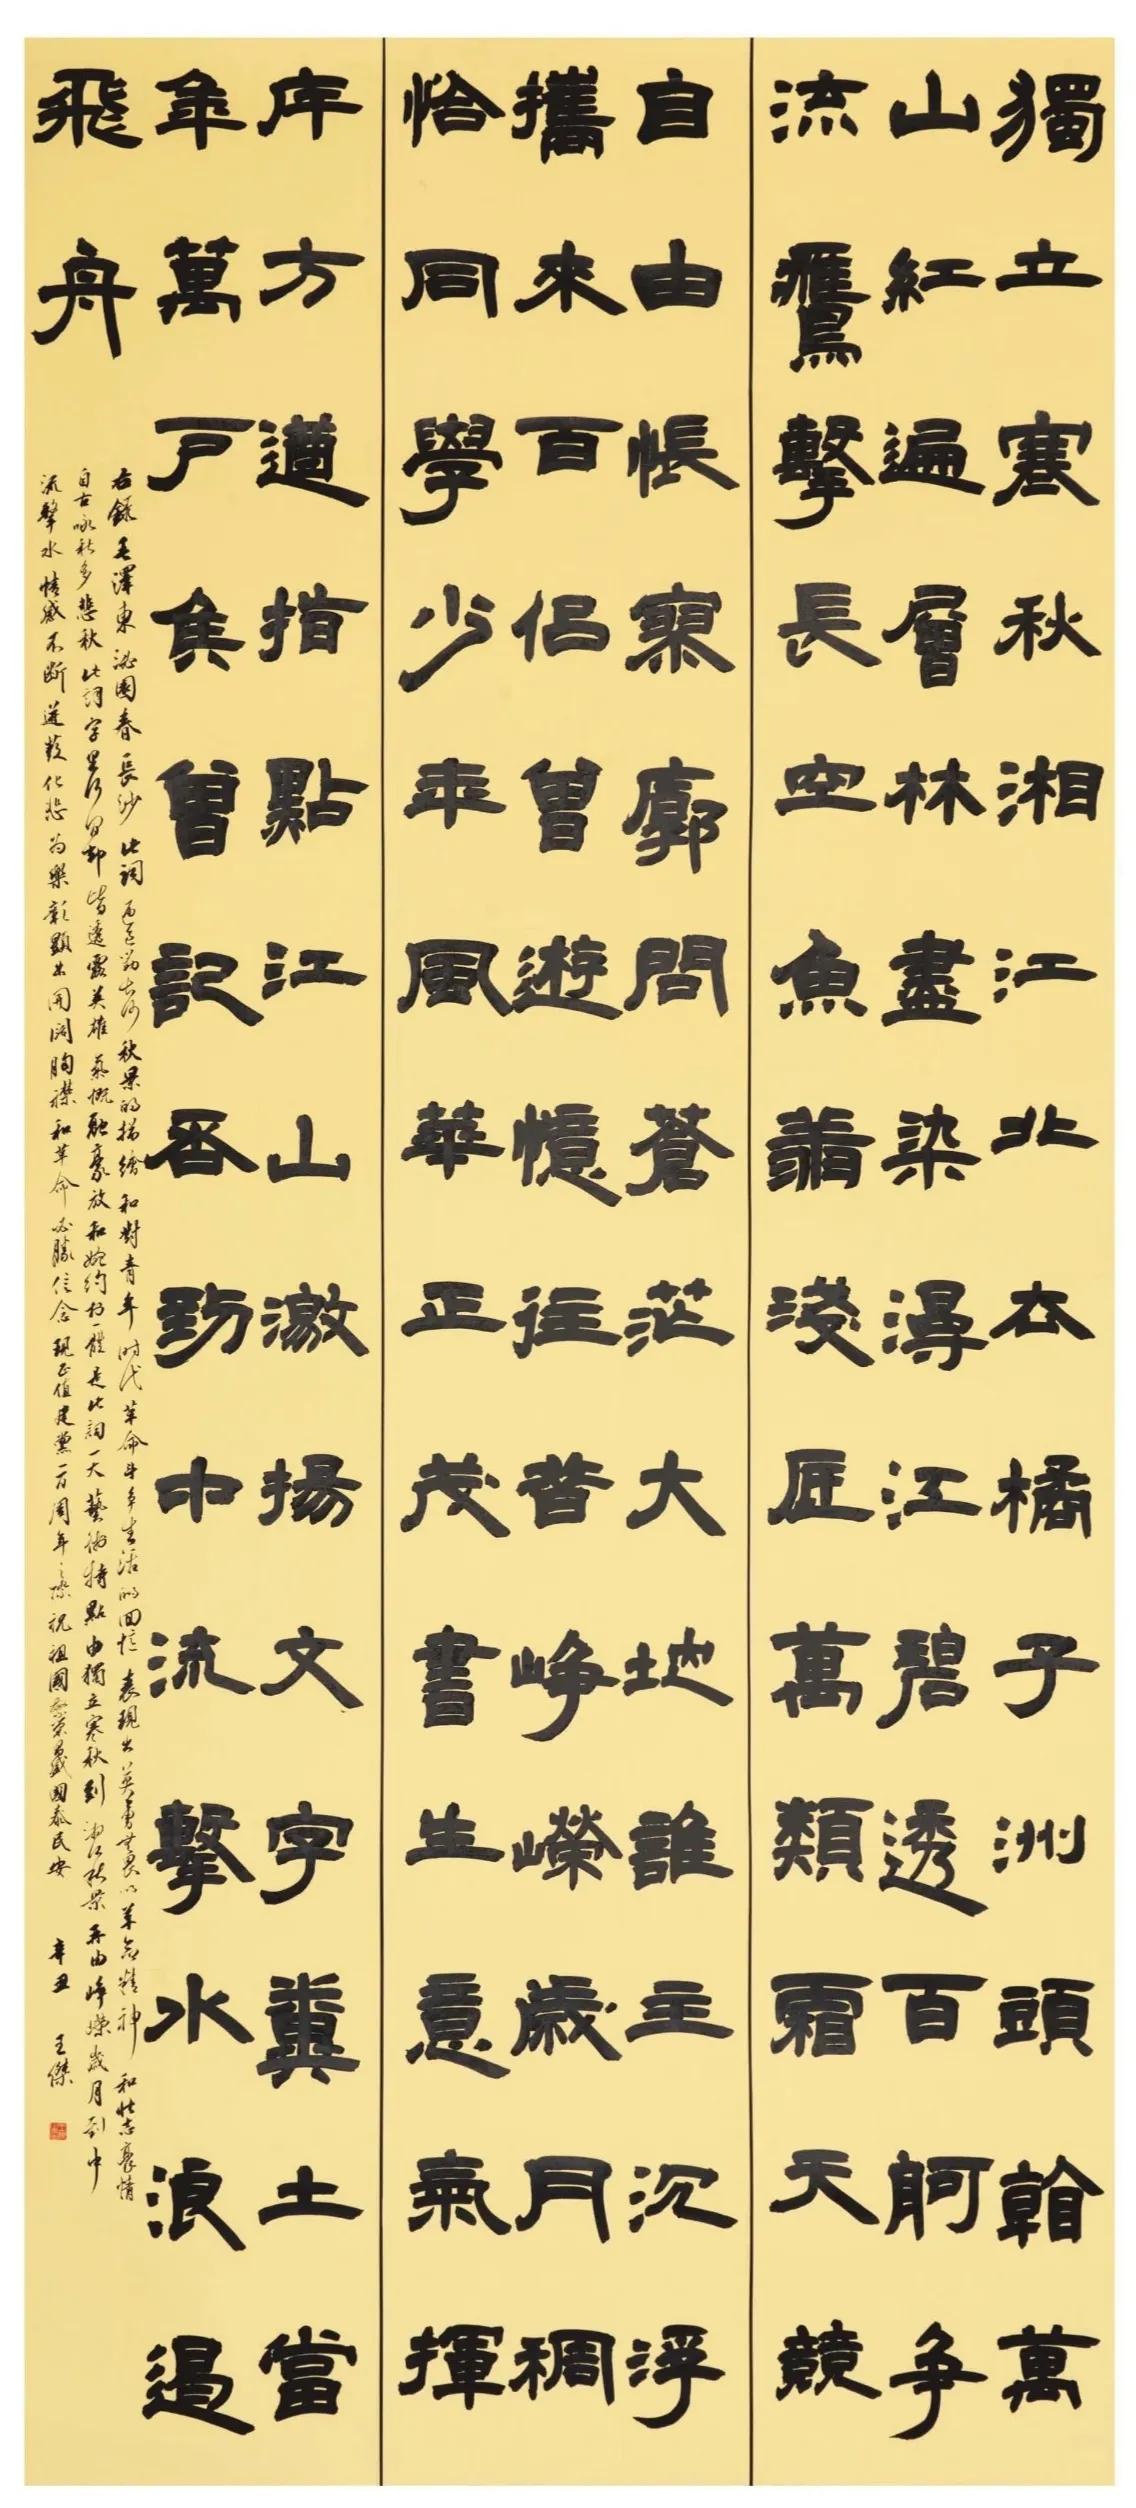 獨立寒秋湘江北去橘子洲頭看萬
山紅遍層林盡染漫江碧透百舸争
流鷹擊長空魚翔淺底萬類霜天競
自由悵寥廓問蒼茫大地誰主沉浮
攜來百侶曾遊憶往昔峥嶸歲月稠
恰同學少年風華正茂書生意氣揮
斥方遒指點江山激揚文字糞土當
年萬戶矦曾記否到中流擊水浪遏
飛舟
右錄毛澤東沁園春長沙此詞通過對長沙秋景的描繪和對青年時代革命斗争生活的回憶表現出英勇無畏的革命精神和壯志豪情
自古咏秋多悲秋此詞字里行間却皆透露英雄氣慨融豪放和婉約於一體是此詞一大藝術特點由獨立寒秋到湘江秋景再由峥嶸歲月到中
流擊水情感不斷遞化悲為樂彰顯出開闊胸襟和革命必勝信念現正值建黨一百周年之際祝祖國繁榮昌盛國泰民安辛丑王傑